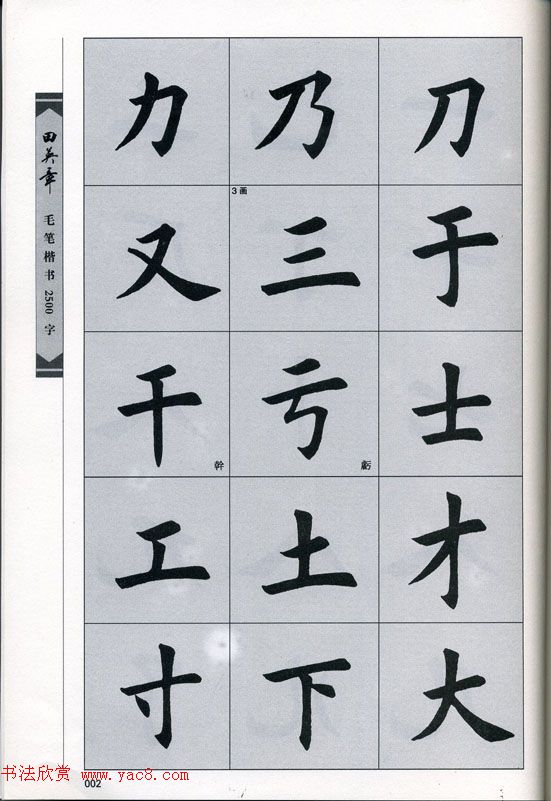 田英章
毛笔楷书2500字
力 乃 刀
3画
又 三 于
干 亏 士
幹 虧
工 土 才
寸 下 大
书法欣赏 www.yac8.com
002